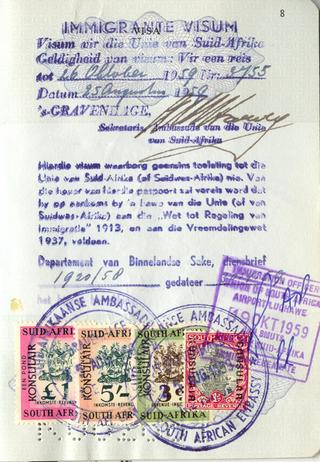 8
IMMIGRANTE VISUM
VISA
Visum vir die Unie van Suid-Afrika
Geldigheid van visum: Vir een reis
tot 26 Oktober 1959 Nr: 2755
Datum 25 Augustus 1959
's-GRAVENHAGE,
Sekretaris, Ambassade van die Unie
van Suid-Afrika
Hierdie visum waarborg geensins toelating tot die
Unie van Suid-Afrika (of Suidwes-Afrika) nie. Van
die houer van hierdie paspoort sal vereis word dat
hy op aankoms by 'n hawe van die Unie (of van
Suidwes-Afrika) aan die „Wet tot Regeling van
Immigratie" 1913, en aan die Vreemdelingewet
1937, voldoen.
Departement van Binnelandse Sake, diensbrief
1920/58
gedateer
IMMIGRATION OFFICER
UNION OF SOUTH AFRICA
AIRPORT/LUGHAWE
OKT 1959
SUID-AFRIKA
AMBASSADE
SOUTH AFRICAN EMBASSY
SUID-AFRIKA
KONSULÊR
EEN POND
£1
INKOMSTE-REVENUE
SOUTH AFRICA
SUID-AFRIKA
KONSULÊR
5/-
INKOMSTE-REVENUE
SOUTH AFRICA
SUID-AFRIKA
KONSULÊR
3
INKOMSTE-REVENUE
SOUTH AFRICA
POSTAGE REVENUE